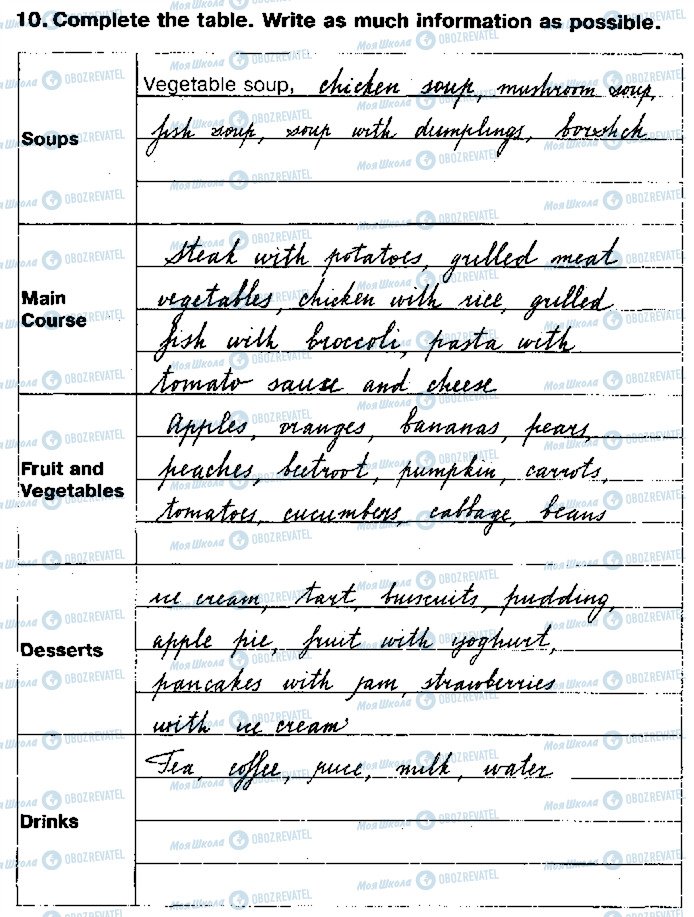 10. Complete the table. Write as much information as possible.
Soups
Vegetable soup, chicken soup, mushroom soup,
fish soup, soup with dumplings, borshch
Main Course
Steak with potatoes, grilled meat
vegetables, chicken with rice, grilled
fish with broccoli, pasta with
tomato sause and cheese
Fruit and Vegetables
Apples, oranges, bananas, pears,
peaches, beetroot, pumpkin, carrots,
tomatoes, cucumbers, cabbage, beans
Desserts
ice cream, tart, buiscuits, pudding,
apple pie, fruit with yoghurt,
pancakes with jam, strawberries
with ice cream
Drinks
Tea, coffee, juice, milk, water
Моя Школа OBOZREVATEL